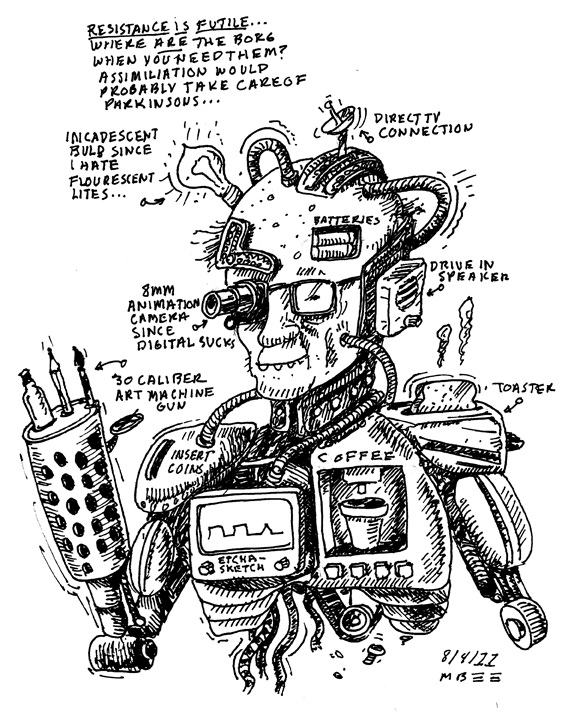 RESISTANCE IS FUTILE...
WHERE ARE THE BORG
WHEN YOU NEED THEM?
ASSIMILIATION WOULD
PROBABLY TAKE CARE OF
PARKINSONS...
DIRECT TV
CONNECTION
INCADESCENT
BULB SINCE
I HATE
FLOURESCENT
LITES...
BATTERIES
DRIVE IN
SPEAKER
8MM
ANIMATION
CAMERA
SINCE
DIGITAL SUCKS
30 CALIBER
ART MACHINE
GUN
TOASTER
INSERT
COINS
COFFEE
ETCHA-
SKETCH
8/4/11
MBEE